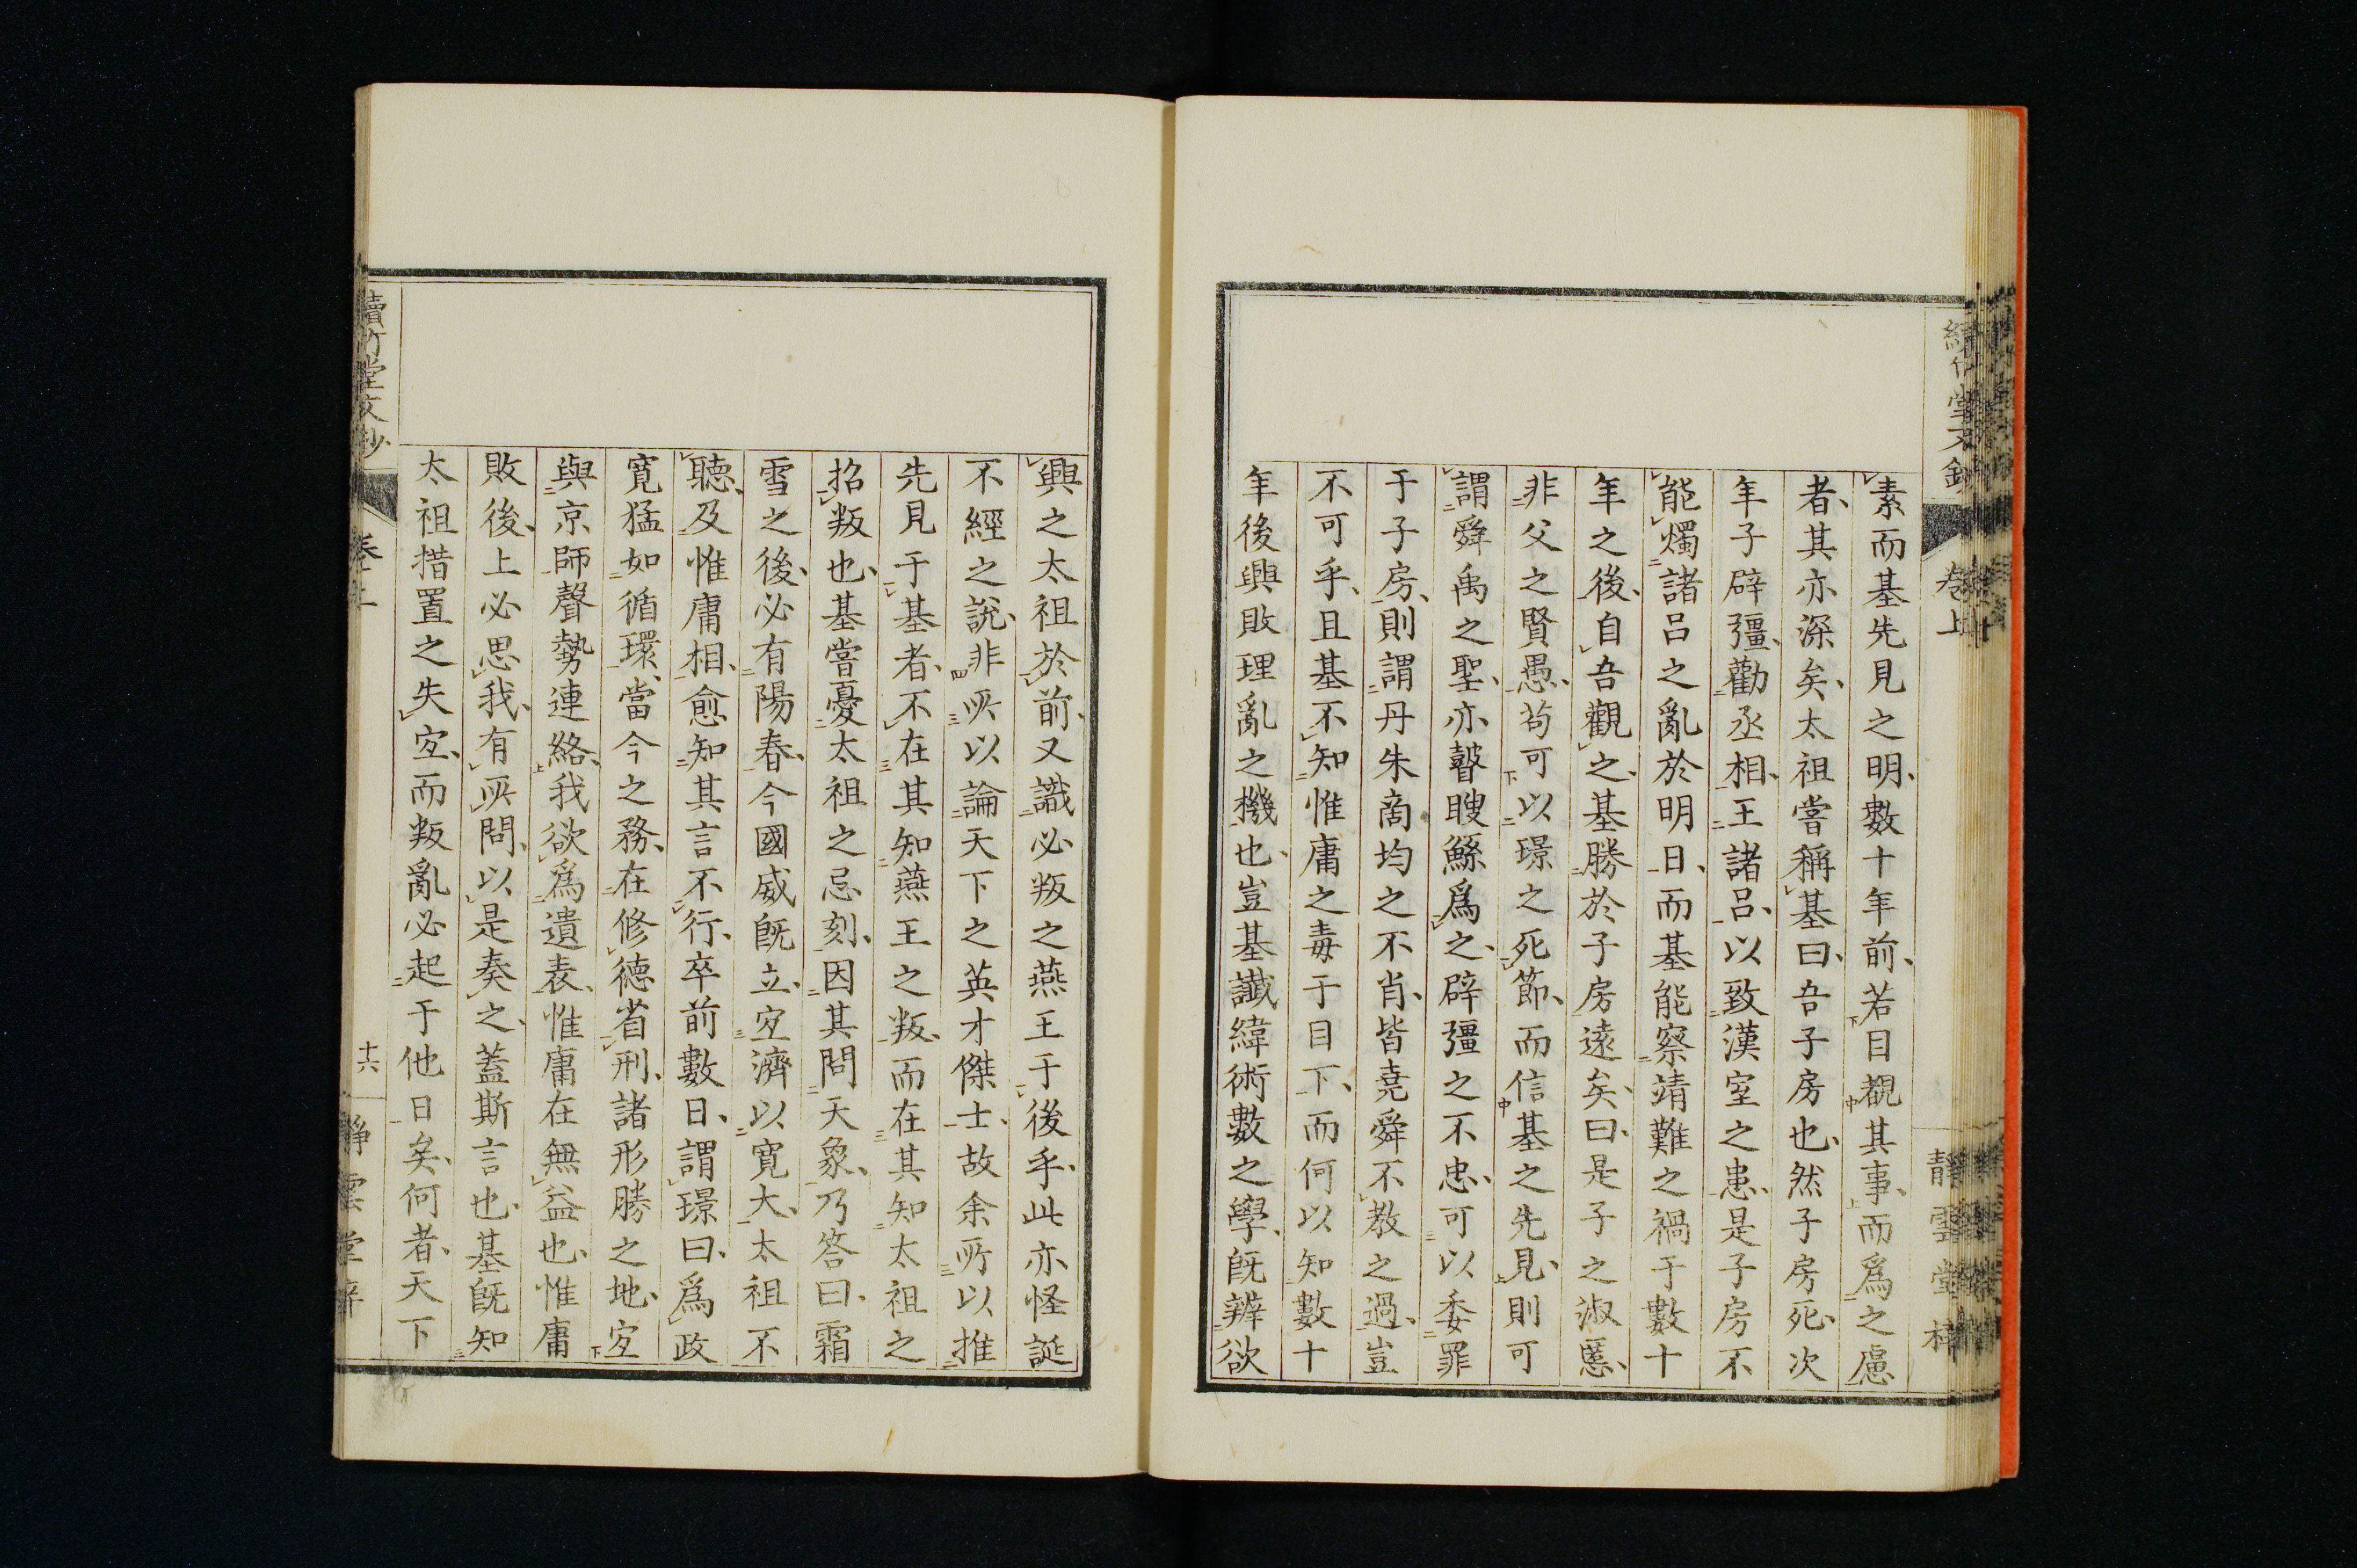 續竹堂文鈔
卷上
靜雲堂梓
素而基先見之明、數十年前、若目覩其事、而爲之慮
者、其亦深矣、太祖嘗稱基曰、吾子房也、然子房死、次
年子辟彊、勸丞相、王諸呂、以致漢室之患、是子房不
能燭諸呂之亂於明日、而基能察靖難之禍于數十
年之後、自吾觀之、基勝於子房遠矣、曰、是子之淑慝、
非父之賢愚、苟可以璟之死節、而信基之先見、則可
謂舜禹之聖、亦瞽瞍鯀爲之、辟彊之不忠、可以委罪
于子房、則謂丹朱商均之不肖、皆堯舜不敎之過、豈
不可乎、且基不知惟庸之毒于目下、而何以知數十
年後興敗理亂之機也、豈基讖緯術數之學、旣辨欲
興之太祖於前、又識必叛之燕王于後乎、此亦怪誕
不經之說、非所以論天下之英才傑士、故余所以推
先見于基者、不在其知燕王之叛、而在其知太祖之
招叛也、基嘗憂太祖之忌刻、因其問天象、乃答曰、霜
雪之後、必有陽春、今國威旣立、宜濟以寬大、太祖不
聽、及惟庸相、愈知其言不行、卒前數日、謂璟曰、爲政
寬猛如循環、當今之務、在修德省刑、諸形勝之地、宜
與京師聲勢連絡、我欲爲遺表、惟庸在無益也、惟庸
敗後、上必思我、有所問、以是奏之、蓋斯言也、基旣知
太祖措置之失宜、而叛亂必起于他日矣、何者、天下
續竹堂文鈔
卷上
十六
靜雲堂梓